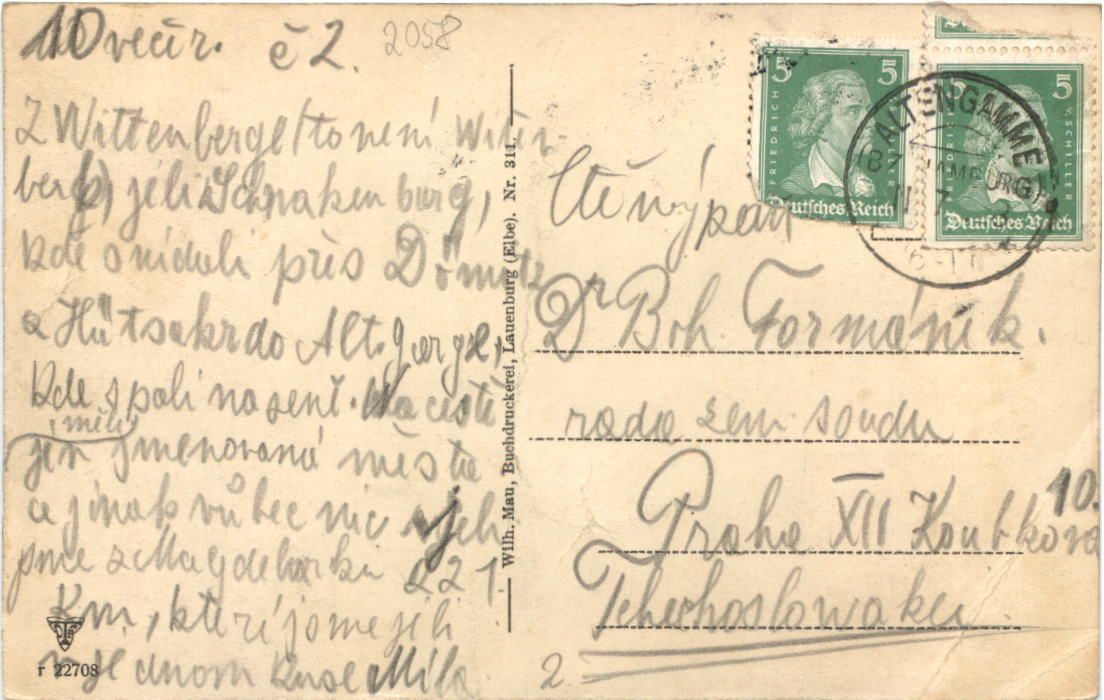 10 večír. č 2.
2058
Z Wittenberge (to není Witen-
berg) jeli Schnakenburg,
kde snídali přes Dömitz
a Hütsakr do Alt. Garge,
kde spali na seně. Na cestě
měli
jen jmenovaná města
a jinak vůbec nic vyjeli
jsme z Magdeburku 221
Km, které jsme jeli
v jednom kuse Míla
r 22708
Wilh. Mau, Buchdruckerei, Lauenburg (Elbe). Nr. 311.
5 5
FRIEDRICH
Deutsches Reich
5 5
FRIEDRICH V. SCHILLER
Deutsches Reich
ALTENGAMME
(BZ. HAMBURG)
Ctěný pan
Dr Boh. Formánek.
rada zem soudu
10.
Praha XII Koubkova
Tchechoslowakei
2.